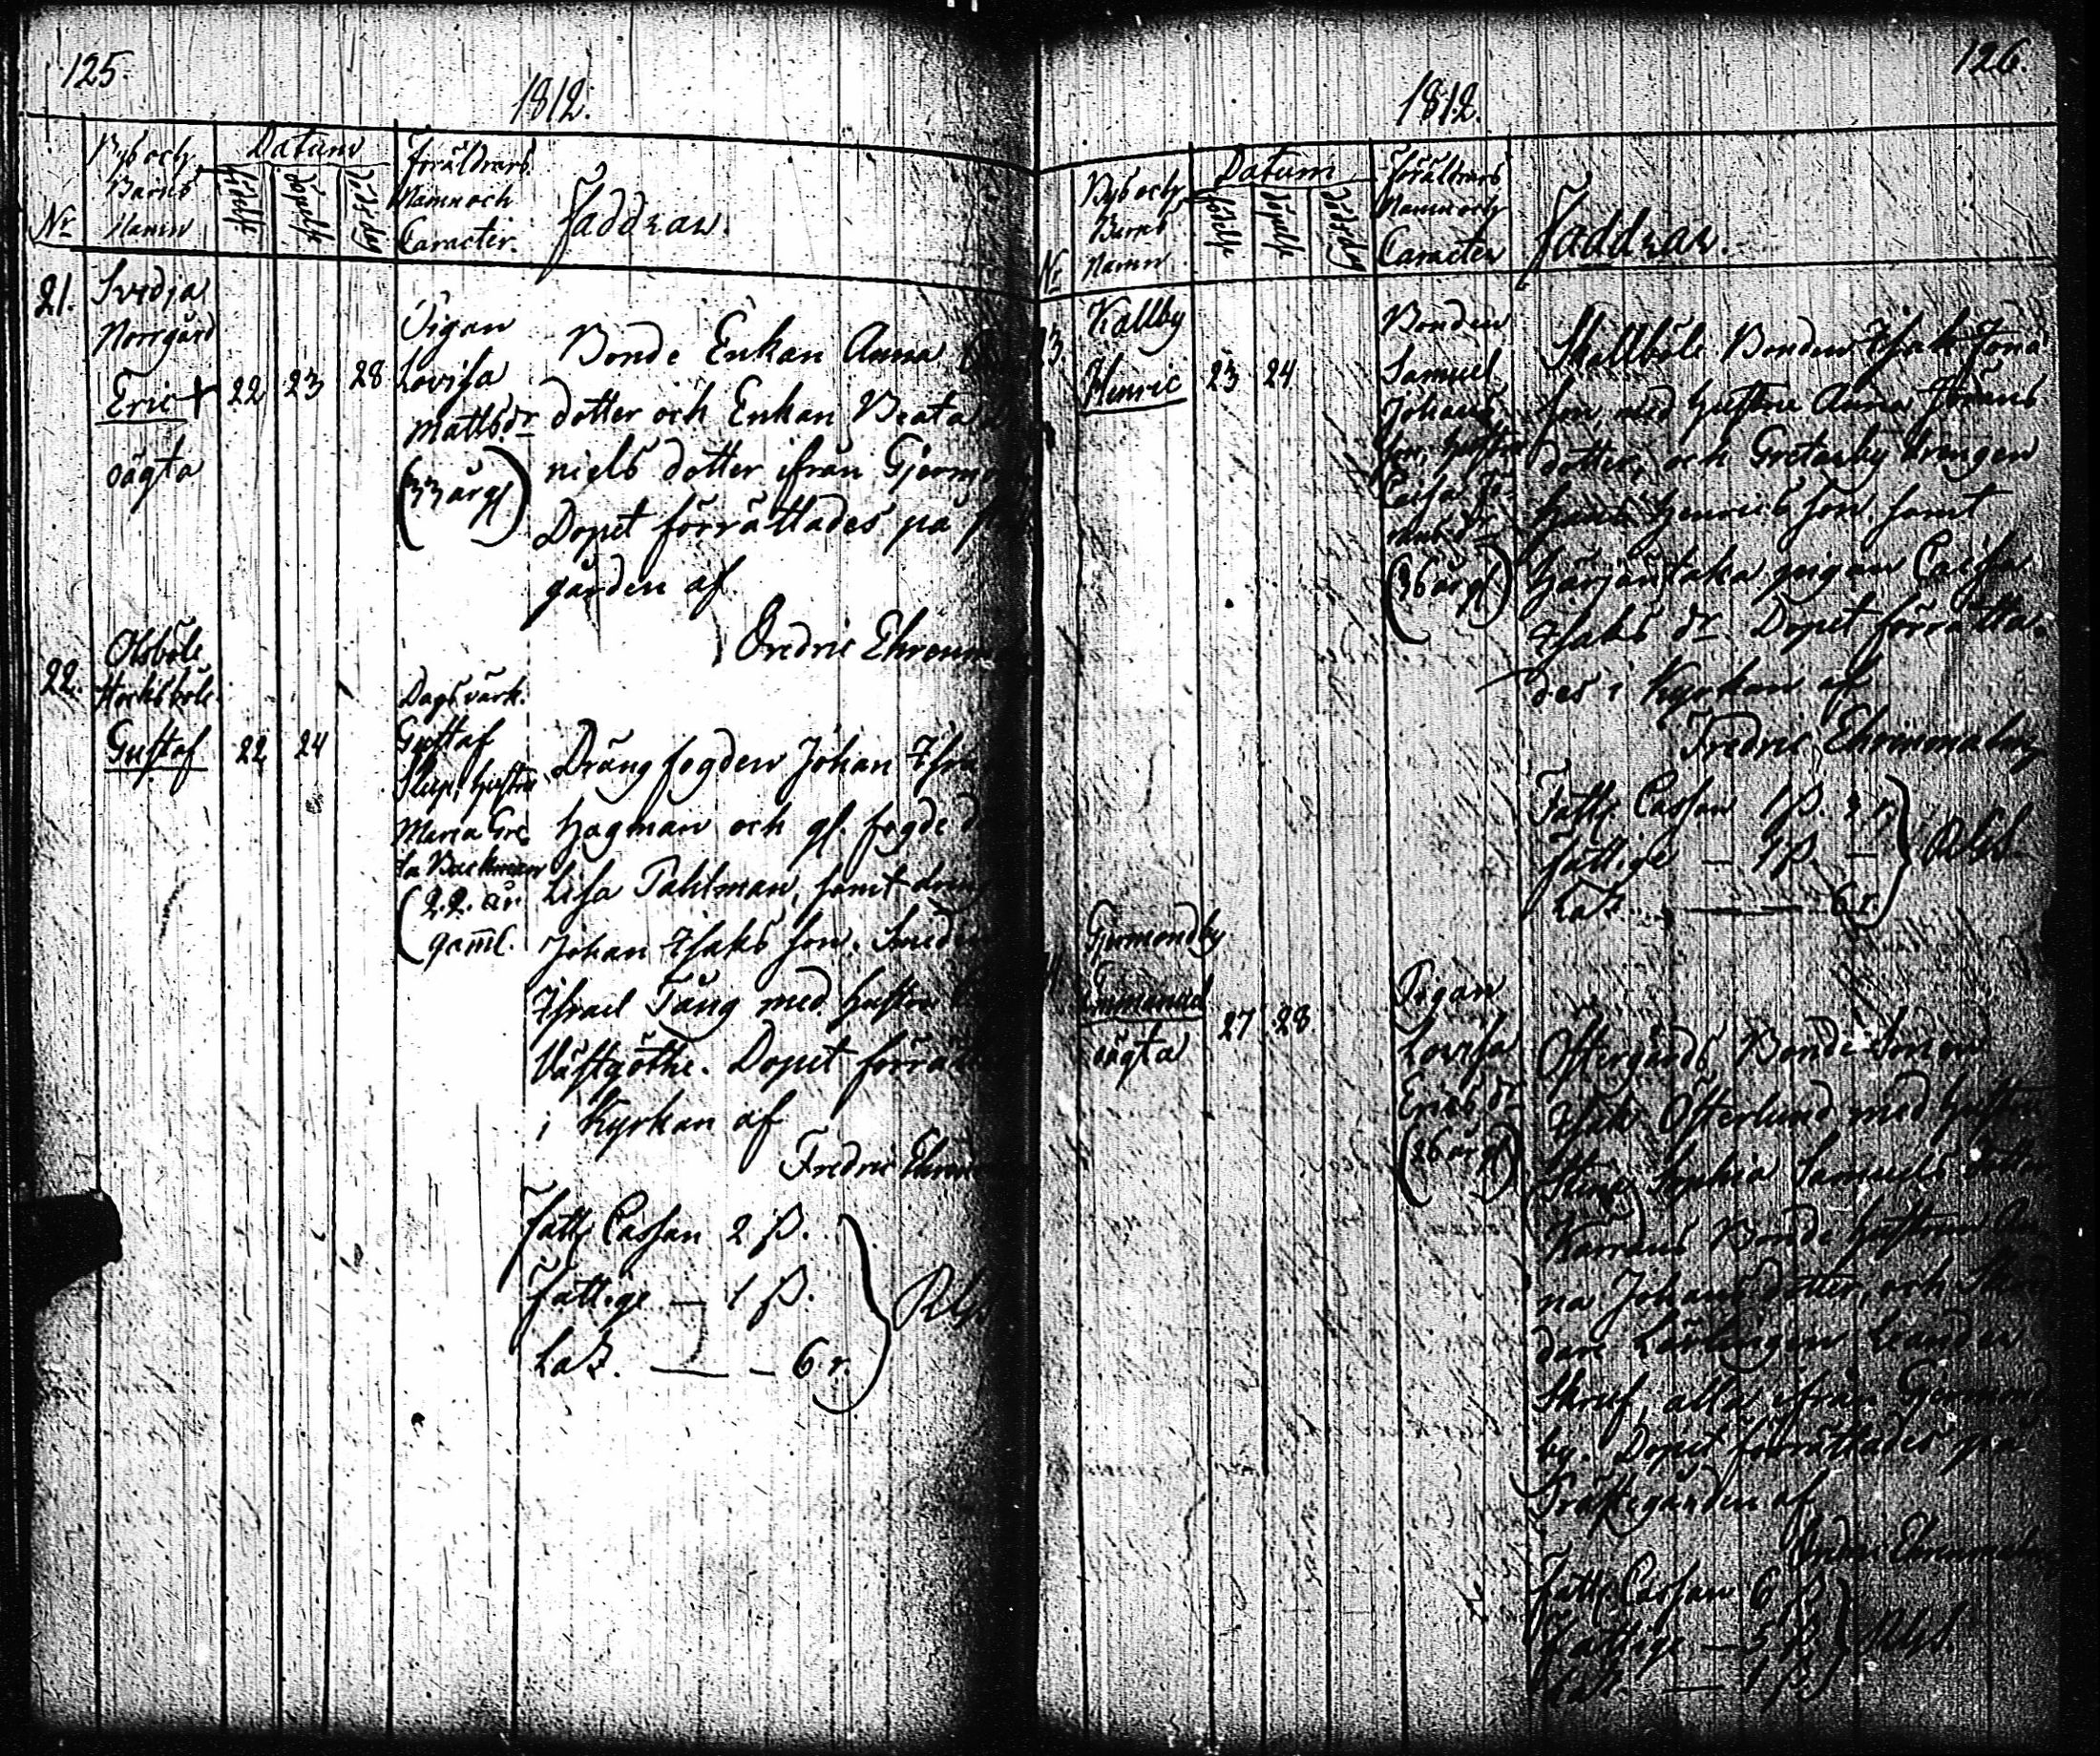 125.
1812.
Nr
Byb och
Barns
Namn
Datum
födelse
döpelse
dödsdag
Föräldrars
Namn och
Caracter.
Faddrar.
21.
Svedja
Norrgård
Eric +
oägta
22
23
28
Pigan
Lovisa
Mattsdr
(33 årg)
Bonde Enkan Anna
dotter och Enkan Beata
niels dotter ifrån
Dopet förrättades på
gården af
Fredric
22.
Olsböle
Gustaf
22
24
Dagsvark.
Gustaf
hustru
Maria Gre
ta Backman
(22. år
gaml.
Drängfogden Johan
Hagman och gl. fogde
Lisa Pahlman, samt
Johan Isaks son. Smeden
Israel Tång med hustru
Västgöthe. Dopet
i Kyrkan af
Fredric
Fattg Cassan 2 ß.
fattige — 1 ß.
— — 6 r.
126.
1812.
Nr
Byb och
Barns
Namn
Datum
födelse
döpelse
dödsdag
Föräldrars
Namn och
Caracter
Faddrar.
Kallby
Henric
23
24
Bonden
Samuel
Johans
son, hustru
Caisa
(36 årg)
Skallböle Bonden Isak Jona
son, med hustru Anna Jörans
dotter, och drengen
Henrics son, samt
pigan Caisa
Isaks dr. Dopet förrätta-
des i Kyrkan af
Fredric Ehrenmalm
Fattg Cassan 1 ß.
fattige — 1 ß. —
6 r.
Gjermondby
Emmanuel
oägta
27
28
Pigan
Lovisa
Erics dr
(26 årg)
Östergårds Bonde Sonen
Isak Österlund med hustru
Stina Sophia Samuels dotter
Bonde hustrun An
na Johans dotter, och
dare Lärlingen Leander
alla ifrån Gjermond
by. Dopet förrättades på
Prästegården af
Fredric Ehrenmalm
Fattg Cassan 6 ß.
Fattige — 5 ß.
— 1 ß.